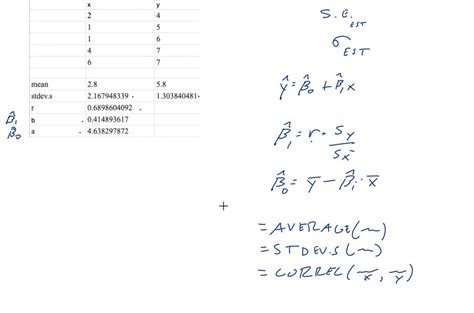 x y
2 4
1 5
1 6
4 7
6 7
mean 2.8 5.8
stdev.s 2.167948339 1.303840481
r 0.6898604092
β̂₁ b 0.414893617
β̂₀ a 4.638297872
S.E. EST
σ EST
ŷ = β̂₀ + β̂₁x
β̂₁ = r · Sy / Sx
β̂₀ = ȳ − β̂₁ · x̄
= AVERAGE(~)
= STDEV.S(~)
= CORREL(~x, ~y)